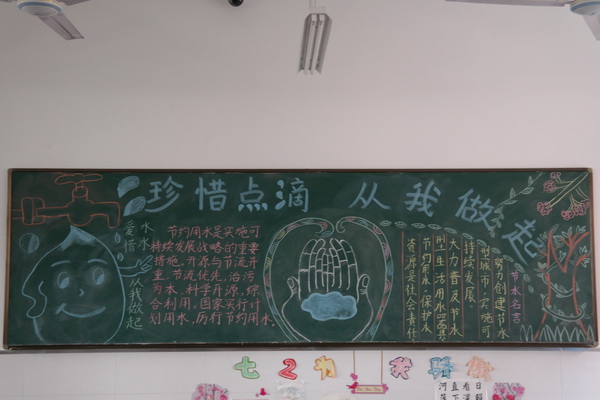 珍惜点滴 从我做起
爱惜水
水
从我做起
节约用水是实施可
持续发展战略的重要
措施。开源与节流并
重,节流优先,治污
为本,科学开源,综
合利用。国家实行计
划用水,厉行节约用水。
节水名言
努力创建节水
型城市,实施可
持续发展。
大力普及节水
型生活用水器具
节约用水,保护水
资源是社会责任